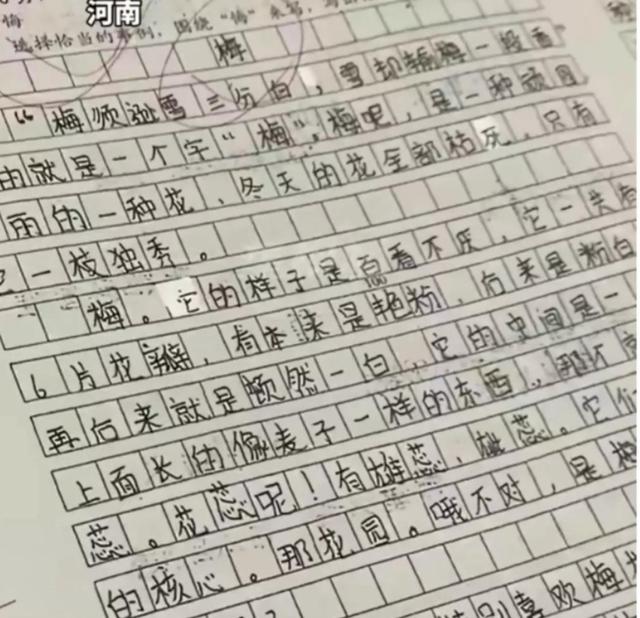 河南
悔
选择恰当的事例，围绕“悔”来写，
梅
“梅须逊雪三份白，雪却输梅一段香”
的就是一个字“梅”，梅呢，是一种顽固
雨的一种花、冬天的花全部枯死，只有
它一枝独秀。
梅。它的样子是百看不厌，它一共有
6片花瓣，看本来是艳粉，后来是粉白
再后来就是顿然一白，它的中间是一
上面长的像麦子一样的东西，那
蕊。花蕊呢！有雄蕊、雌蕊。它们
的核心。那花园。哦不对，是梅
别喜欢梅